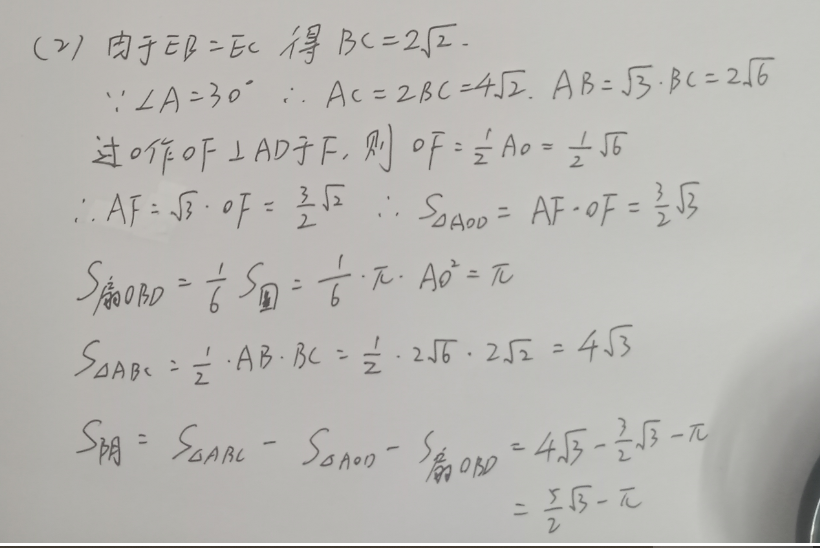 (2) 由于EB=EC 得 BC=2√2.
∵∠A=30° ∴ AC=2BC=4√2. AB=√3·BC=2√6
过O作OF⊥AD于F,则 OF=1/2 AO=1/2 √6
∴AF=√3·OF=3/2 √2 ∴ S△AOD=AF·OF=3/2 √3
S扇OBD=1/6 S圆=1/6·π·AO²=π
S△ABC=1/2·AB·BC=1/2·2√6·2√2=4√3
S阴=S△ABC-S△AOD-S扇OBD=4√3-3/2 √3-π
=5/2 √3-π